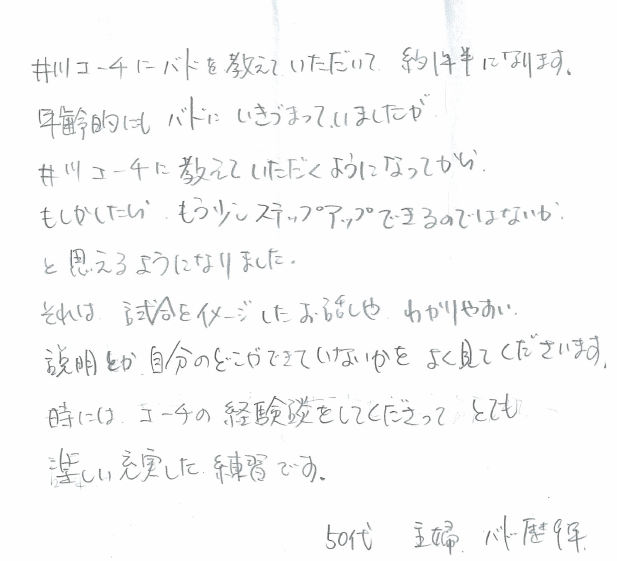 井川コーチにバドを教えていただいて 約1年半になります。
年齢的にも バドに いきづまっていましたが
井川コーチに教えていただくようになってから、
もしかしたら もう少しステップアップできるのではないか
と思えるようになりました。
それは 試合をイメージしたお話しや わかりやすい
説明とか 自分のどこができていないかを よく見てくださいます。
時には コーチの経験談をしてくださって とても
楽しい充実した練習です。
50代 主婦 バド歴9年